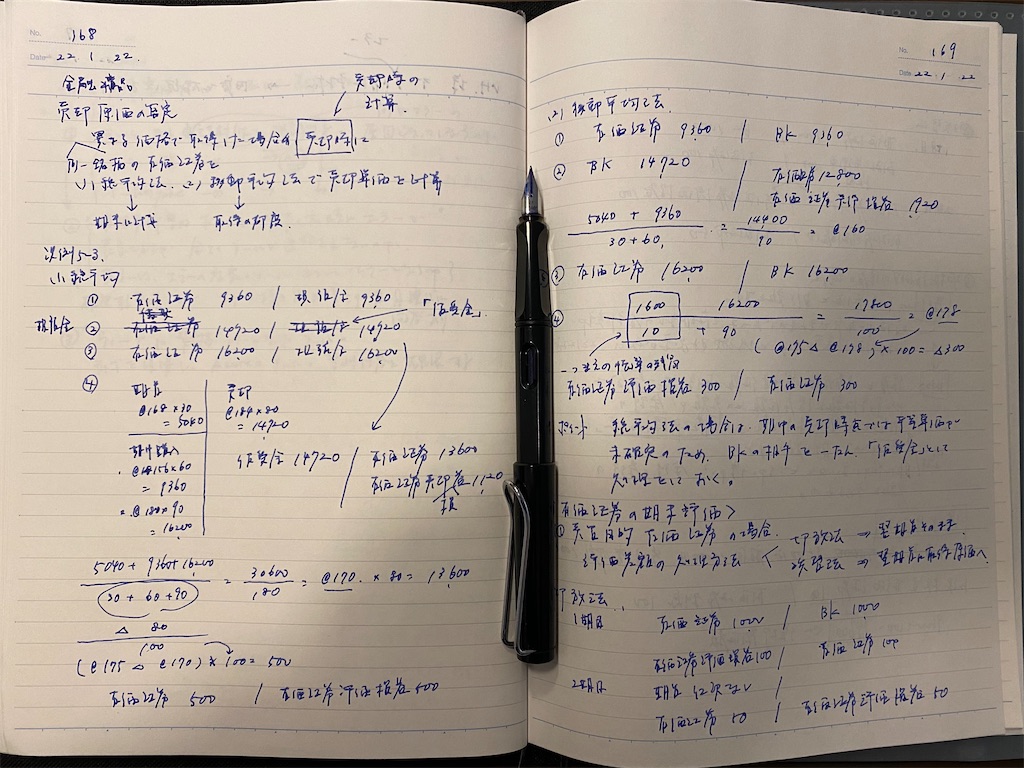 No. 168
Date 22. 1. 22.
金融商品
売却時の
計算.
売却原価の算定
異なる価格で取得した場合は、売却時に
同一銘柄の有価証券を
(1) 総平均法、(2) 移動平均法で売却原価を計算
期末に計算 取得の都度.
設例5-3.
(1) 総平均
① 有価証券 9360 / 現預金 9360
「仮受金」
現預金 ② 有価証券 14920 / 現預金 14920
③ 有価証 16200 / 現預金 16200
④
期首
@168×30
= 5040
売却
@184×80
= 14720
期中購入
@156×60
= 9360
@180×90
= 16200
仮受金 14720 / 有価証券 13600
有価証券売却益 1120
損
5040 + 9360 + 16200
30 + 60 + 90
= 30600
180
= @170. × 80 = 13600
△ 80
100
(@175 △ @170) × 100 = 500
有価証券 500 / 有価証券評価損益 500
No. 169
Date 22. 1. 22
(2) 移動平均法
① 有価証券 9360 / BK 9360
② BK 14720 / 有価証券 12800
有価証券売却損益 1920
5040 + 9360
30 + 60
= 14400
90
= @160
③ 有価証券 16200 / BK 16200
④ 1600 16200
10 + 90
= 17800
100
= @178
(@175 △ @178) × 100 = △300
有価証券評価損益 300 / 有価証券 300
ポイント 総平均法の場合は、期中の売却時点では平均単価が
未確定のため、BKの相手を一たん、「仮受金」として
処理をしておく。
有価証券の期末評価>
① 売買目的有価証券の場合.
評価差額の処理方法 < 切放法 ⇒ 翌期首そのまま
洗替法 ⇒ 翌期首に取得原価へ
切放法
1期目 有価証券 1000 / BK 1000
有価証券評価損益 100 / 有価証券 100
2期目 期首 仕訳なし /
有価証券 50 / 有価証券評価損益 50